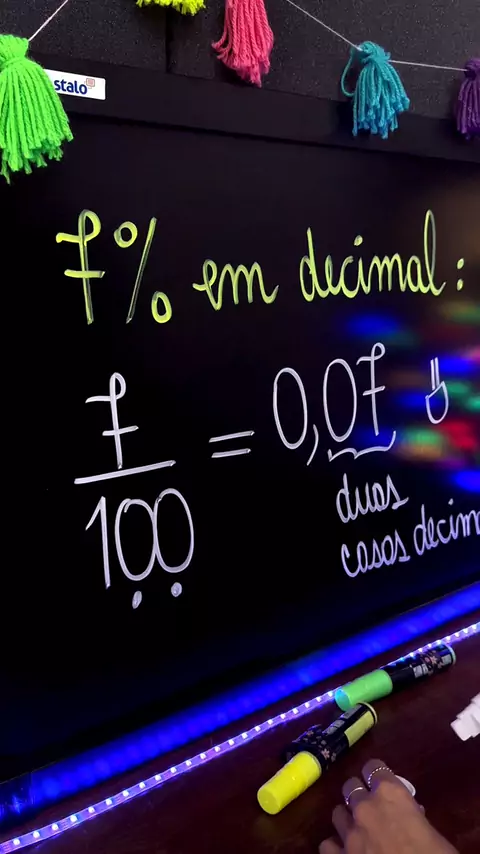 stalo
7% em decimal:
7/100 = 0,07
duas
casas decim